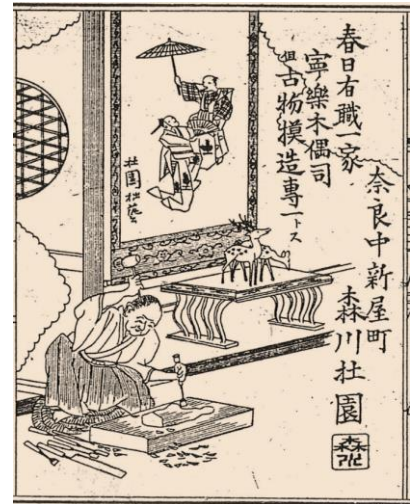 春日有職一家
寧樂木偶司
但古物模造專一トス
奈良中新屋町
森川杜園
杜園杜藝